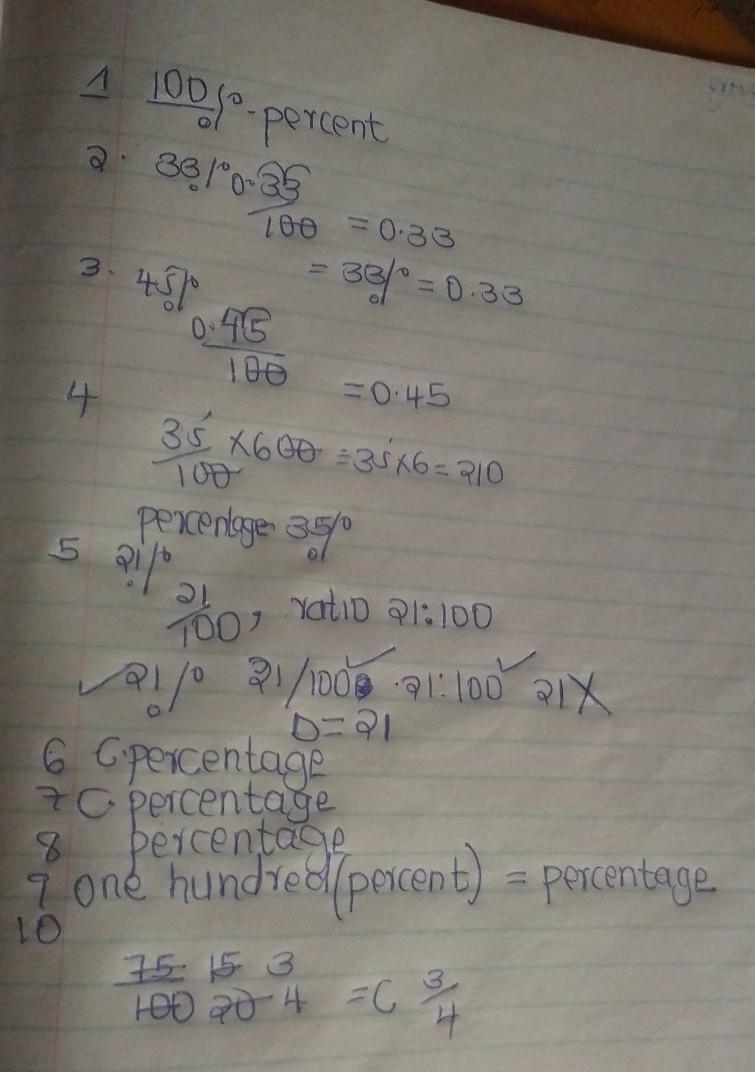 1 100% - percent
2. 33% 0.33
100 = 0.33
= 33% = 0.33
3. 45%
0.45
100 = 0.45
4
35/100 x 600 = 35 x 6 = 210
percentage 35%
5 21%
21/100, ratio 21:100
✓ 21% 21/100 ✓ 21:100 ✓ 21 X
D = 21
6 C. percentage
7 C. percentage
8 percentage
9 one hundred (percent) = percentage
10
75 15 3
100 20 4 = C 3/4